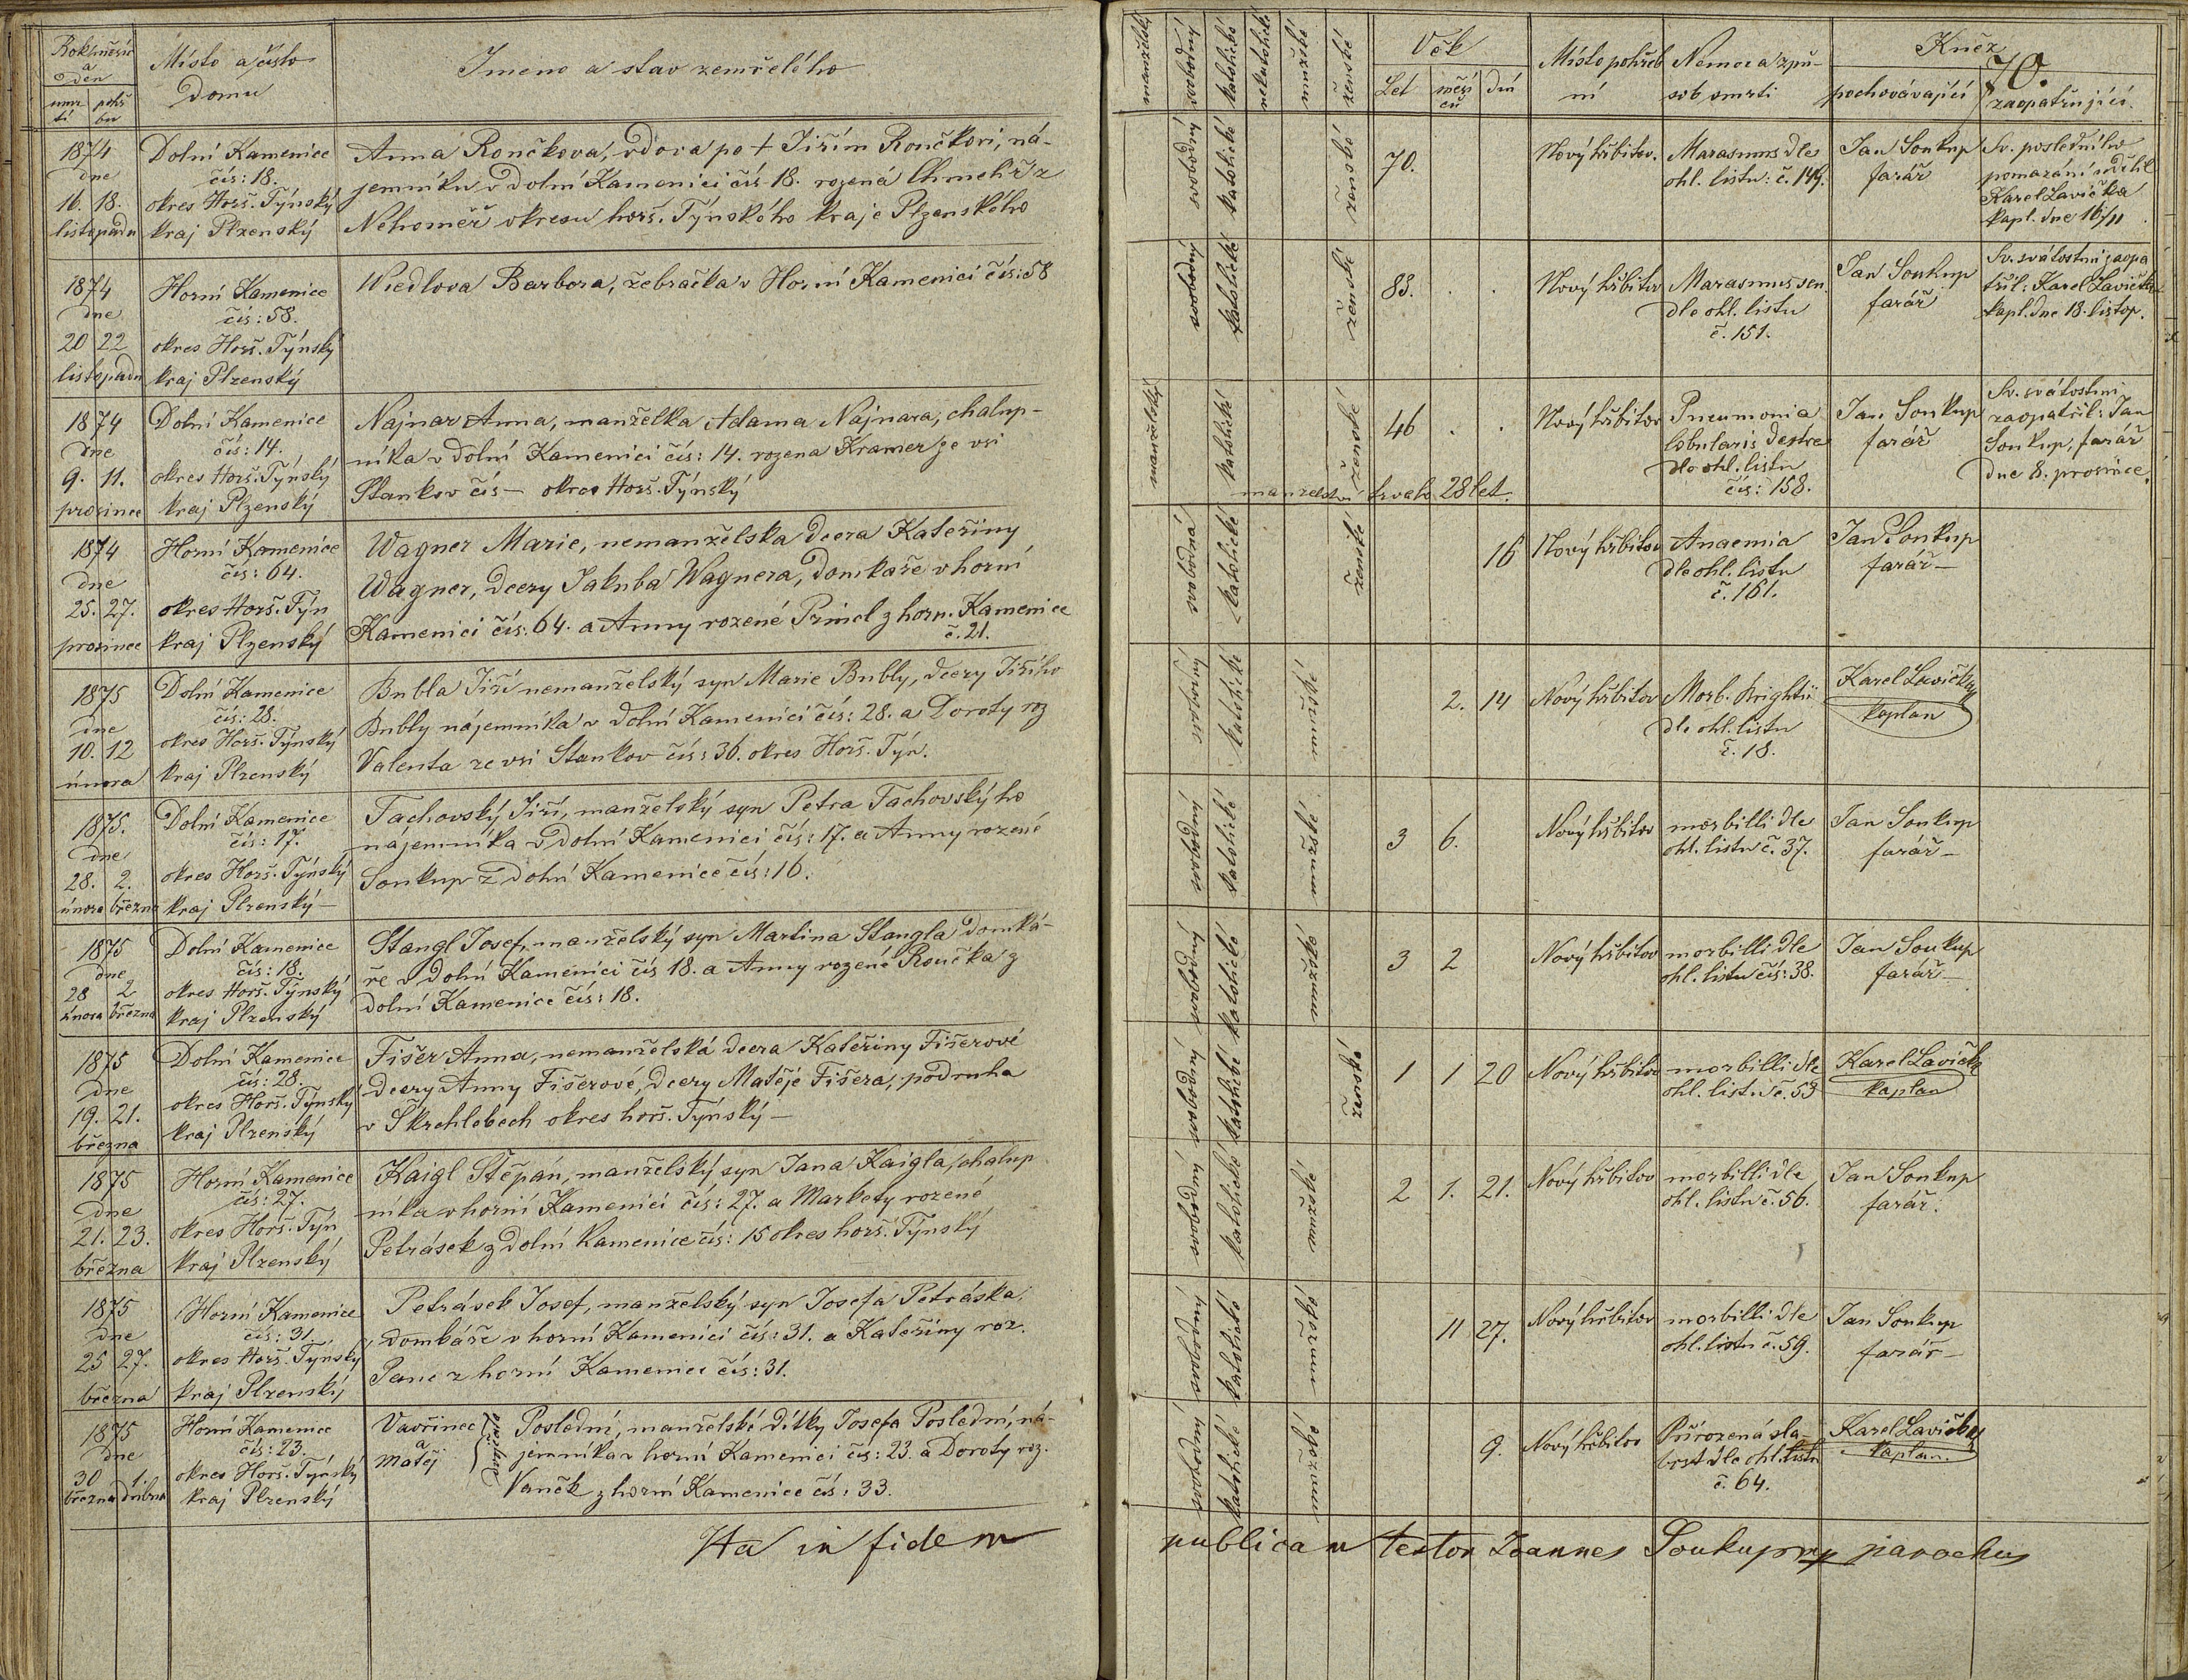 Rok měsíc a den
Místo a číslo domu
Jmeno a stav zemřelého
úmrtí
pohřbu
manželský
svobodný
katolické
nekatolické
mužské
ženské
Věk
Let
měsíců
dní
Místo pohřbení
Nemoc a způsob smrti
Kněz
pochovávající
zaopatřující.
70.
1874
dne
16. 18.
listopadu
Dolní Kamenice
čís: 18.
okres Horš. Týnský
kraj Plzenský
Anna Rončkova, vdova po † Jiřím Rončkovi, ná-
jemníku v dolní Kamenici čís 18. rozená Chmelíř z
Nehoměř okresu horš. Týnského kraje Plzenského
svobodný
katolické
ženské
70.
Nový hřbitov.
Marasmus dle
ohl. listu: č. 149.
Jan Soukup
farář
Sv. posledního
pomazání udělil
Karel Lavička
kapl. dne 16/11
1874
dne
20 22
listopadu
Horní Kamenice
čís: 58.
okres Horš. Týnský
kraj Plzenský
Wiedlova Barbora, žebračka v Horní Kamenici čís: 58
svobodný
katolické
ženské
83. . .
Nový hřbitov
Marasmus sen.
dle ohl. listu
č. 151.
Jan Soukup
farář
Sv. svátostmi zaopa
třil: Karel Lavička
kapl. dne 18. listop.
1874
dne
9. 11.
prosince
Dolní Kamenice
čís: 14.
okres Horš. Týnský
kraj Plzenský
Najnar Anna, manželka Adama Najnara, chalup-
níka v dolní Kamenici čís: 14. rozena Kramer ze vsi
Stankov čís — okres Horš. Týnský
manželský
katolické
ženské
46 . .
manželství trvalo 28 let.
Nový hřbitov
Pneumonia
lobularis dextre
dle ohl. listu
čís: 158.
Jan Soukup
farář
Sv. svátostmi
zaopatřil: Jan
Soukup, farář
dne 8. prosince.
1874
dne
25. 27.
prosince
Horní Kamenice
čís: 64.
okres Horš. Týn
kraj Plzenský
Wagner Marie, nemanželska dcera Kateřiny
Wagner, dcery Jakuba Wagnera, domkaře v horní
Kamenici čís: 64. a Anny rozené Princl z horn. Kamenice
č. 21.
svobodná
katolické
ženské
16
Nový hřbitov
Anaemia
dle ohl. listu
č. 161.
Jan Soukup
farář —
1875
dne
10. 12
února
Dolní Kamenice
čís: 28.
okres Horš. Týnský
kraj Plzenský
Bubla Jiří nemanželský syn Marie Bubly, dcery Jiřího
Bubly nájemníka v dolní Kamenici čís: 28. a Doroty roz
Valenta ze vsi Stankov čís: 36. okres Horš. Týn.
svobodný
katolické
mužské
2. 14
Nový hřbitov
Morb. Brightii
dle ohl. listu
č. 18.
Karel Lavička
kaplan
1875.
dne
28. 2.
února března
Dolní Kamenice
čís: 17.
okres Horš. Týnský
kraj Plzenský —
Tachovský Jiří, manželský syn Petra Tachovského
nájemníka v dolní Kamenici čís: 17. a Anny rozené
Soukup z dolní Kamenice čís: 16.
svobodný
katolické
mužské
3 6.
Nový hřbitov
morbilli dle
ohl. listu č. 37.
Jan Soukup
farář —
1875
dne
28 2
února března
Dolní Kamenice
čís: 18.
okres Horš. Týnský
kraj Plzenský
Stangl Josef, manželský syn Martina Stangla domká-
ře v dolní Kamenici čís 18. a Anny rozené Rončka z
dolní Kamenice čís: 18.
svobodný
katolické
mužské
3 2
Nový hřbitov
morbilli dle
ohl. listu čís: 38.
Jan Soukup
farář —
1875
dne
19. 21.
března
Dolní Kamenice
čís: 28.
okres Horš. Týnský
kraj Plzenský
Fišer Anna, nemanželská dcera Kateřiny Fišerové
dcery Anny Fišerové, dcery Matěje Fišera, podruha
v Škrchlebech okres horš. Týnský —
svobodný
katolické
ženské
1 1 20
Nový hřbitov
morbilli dle
ohl. listu č. 53
Karel Lavička
kaplan
1875
dne
21. 23.
března
Horní Kamenice
čís: 27.
okres Horš. Týn
kraj Plzenský
Kaigl Štěpán, manželský syn Jana Kaigla, chalup
níka v horní Kamenici čís: 27. a Markety rozené
Petrásek z dolní Kamenice čís: 15 okres horš. Týnský
svobodný
katolické
mužské
2 1. 21.
Nový hřbitov
morbilli dle
ohl. listu č. 56.
Jan Soukup
farář.
1875
dne
25 27.
března
Horní Kamenice
čís: 31
okres Horš. Týnský
kraj Plzenský
Petrásek Josef, manželský syn Josefa Petráska,
domkáře v horní Kamenici čís: 31. a Kateřiny roz.
Panc z horní Kamenici čís: 31.
svobodný
katolické
mužské
11 27.
Nový hřbitov
morbilli dle
ohl. listu č. 59.
Jan Soukup
farář —
1875
dne
30 1.
března dubna
Horní Kamenice
čís: 23.
okres Horš. Týnský
kraj Plzenský
Vavřinec
a
Matěj
dvojčata
Poslední, manželské dítky Josefa Poslední, ná-
jemníka v horní Kamenici čís: 23. a Doroty roz.
Vaněk z horní Kamenice čís: 33.
svobodný
katolické
mužské
9.
Nový hřbitov
Přirozená sla-
bost dle ohl. listu
č. 64.
Karel Lavička
kaplan.
Ita in fidem publicam testor Joannes Soukup mp parochus